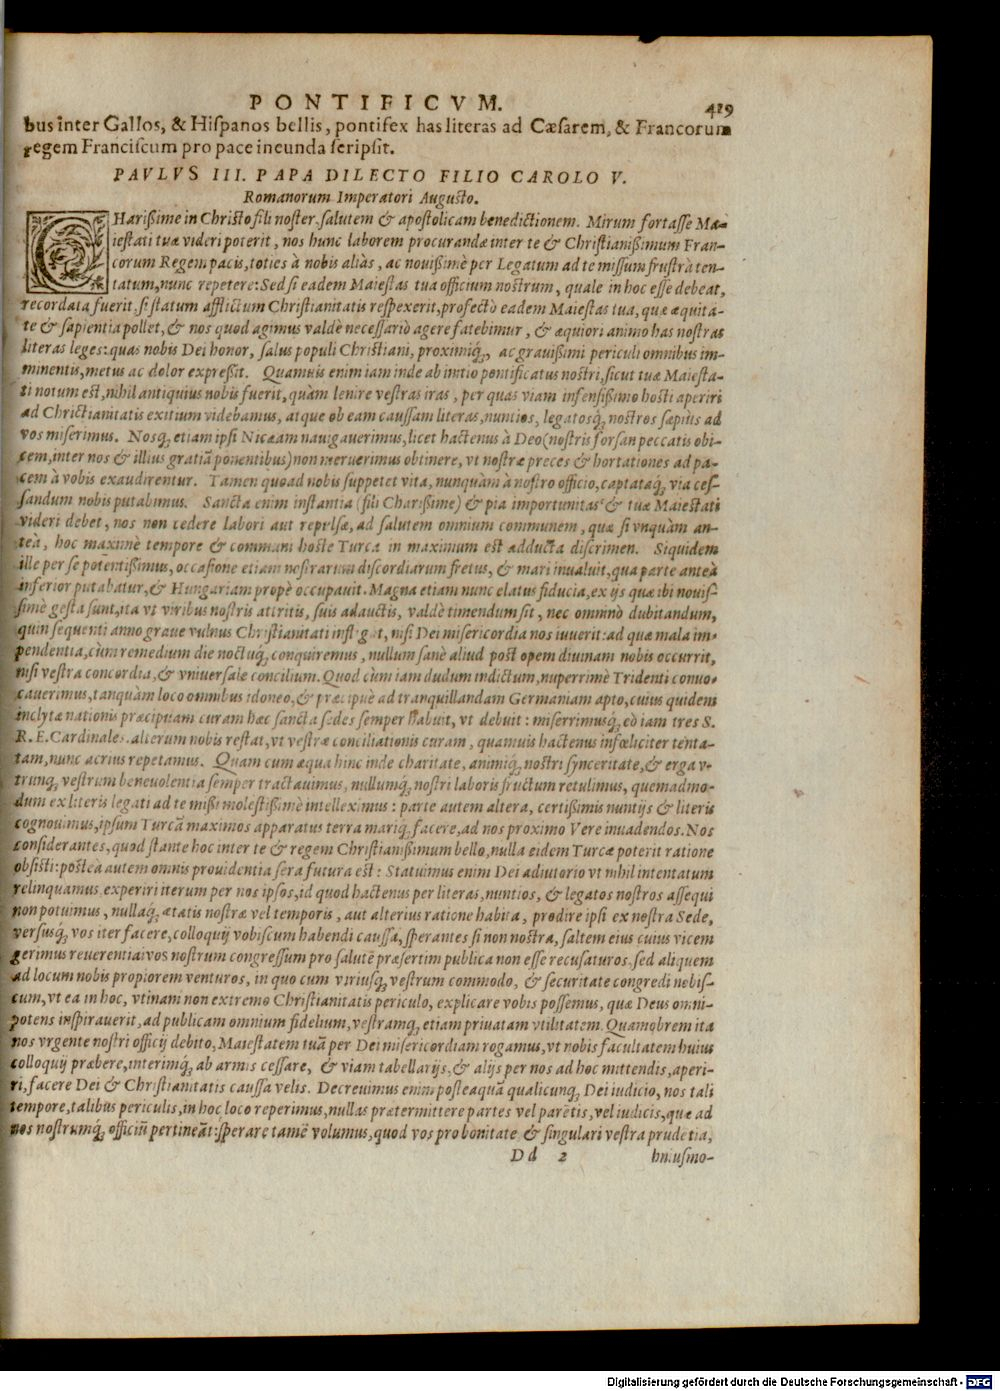 PONTIFICVM. 419
bus inter Gallos, & Hiſpanos bellis, pontifex has literas ad Cæſarem, & Francorum
regem Franciſcum pro pace ineunda ſcripſit.
PAVLVS III. PAPA DILECTO FILIO CAROLO V.
Romanorum Imperatori Auguſto.
CHariſſime in Chriſto fili noſter, ſalutem & apoſtolicam benedictionem. Mirum fortaſſe Ma-
ieſtati tuæ videri poterit, nos hunc laborem procurandæ inter te & Chriſtianißimum Fran-
corum Regem pacis, toties à nobis aliàs, ac nouißimè per Legatum ad te miſſum fruſtrà ten-
tatum, nunc repetere: Sed ſi eadem Maieſtas tua officium noſtrum, quale in hoc eſſe debeat,
recordata fuerit, ſi ſtatum afflictum Chriſtianitatis reſpexerit, profectò eadem Maieſtas tua, quæ æquita-
te & ſapientia pollet, & nos quod agimus valdè neceſſariò agere fatebimur, & æquiori animo has noſtras
literas leges: quas nobis Dei honor, ſalus populi Chriſtiani, proximiq́, ac grauißimi periculi omnibus im-
minentis, metus ac dolor expreßit. Quamuis enim iam inde ab initio pontificatus noſtri, ſicut tuæ Maieſta-
ti notum eſt, nihil antiquius nobis fuerit, quàm lenire veſtras iras, per quas viam infenſißimo hoſti aperiri
ad Chriſtianitatis exitium videbamus, atque ob eam cauſſam literas, nuntios, legatosq́ noſtros ſæpius ad
vos miſerimus. Nosq́ etiam ipſi Nicæam nauigauerimus, licet hactenus à Deo (noſtris forſan peccatis obi-
cem, inter nos & illius gratiā ponentibus) non meruerimus obtinere, vt noſtræ preces & hortationes ad pa-
cem à vobis exaudirentur. Tamen quoad nobis ſuppetet vita, nunquàm à noſtro officio, captataq́ via ceſ-
ſandum nobis putabimus. Sancta enim inſtantia (fili Charißime) & pia importunitas & tuæ Maieſtati
videri debet, nos non cedere labori aut repulſæ, ad ſalutem omnium communem, quæ ſi vnquàm an-
teà, hoc maximè tempore & communi hoſte Turca in maximum eſt adducta diſcrimen. Siquidem
ille per ſe potentißimus, occaſione etiam noſtrarum diſcordiarum fretus, & mari inualuit, qua parte anteà
inferior putabatur, & Hungariam propè occupauit. Magna etiam nunc elatus fiducia, ex ijs quæ ibi nouiſ-
ſimè geſta ſunt, ita vt viribus noſtris attritis, ſuis adauctis, valdè timendum ſit, nec omninò dubitandum,
quin ſequenti anno graue vulnus Chriſtianitati infligat, niſi Dei miſericordia nos iuuerit: ad quæ mala im-
pendentia, cùm remedium die noctuq́ conquiremus, nullum ſanè aliud poſt opem diuinam nobis occurrit,
niſi veſtra concordia, & vniuerſale concilium. Quod cùm iam dudum indictum, nuperrimè Tridenti conuo-
cauerimus, tanquàm loco omnibus idoneo, & præcipuè ad tranquillandam Germaniam apto, cuius quidem
inclytæ nationis præcipuam curam hæc ſancta ſedes ſemper habuit, vt debuit: miſerrimusq́ eò iam tres S.
R. E. Cardinales. alterum nobis reſtat, vt veſtræ conciliationis curam, quamuis hactenus infœliciter tenta-
tam, nunc acrius repetamus. Quam cum æqua hinc inde charitate, animiq́ noſtri ſynceritate, & erga v-
trunq́ veſtrum beneuolentia ſemper tractauimus, nullumq́ noſtri laboris fructum retulimus, quemadmo-
dum ex literis legati ad te mißi moleſtißimè intelleximus: parte autem altera, certißimis nuntijs & literis
cognouimus, ipſum Turcā maximos apparatus terra mariq́ facere, ad nos proximo Vere inuadendos. Nos
conſiderantes, quod ſtante hoc inter te & regem Chriſtianißimum bello, nulla eidem Turcæ poterit ratione
obſiſti: poſtea autem omnis prouidentia ſera futura eſt: Statuimus enim Dei adiutorio vt nihil intentatum
relinquamus, experiri iterum per nos ipſos, id quod hactenus per literas, nuntios, & legatos noſtros aſſequi
non potuimus, nullaq́ ætatis noſtræ vel temporis, aut alterius ratione habita, prodire ipſi ex noſtra Sede,
verſusq́ vos iter facere, colloquij vobiſcum habendi cauſſa, ſperantes ſi non noſtra, ſaltem eius cuius vicem
gerimus reuerentia vos noſtrum congreſſum pro ſalutē præſertim publica non eſſe recuſaturos, ſed aliquem
ad locum nobis propiorem venturos, in quo cum vtriuſq́ veſtrum commodo, & ſecuritate congredi nobiſ-
cum, vt ea in hoc, vtinam non extremo Chriſtianitatis periculo, explicare vobis poſſemus, quæ Deus omni-
potens inſpirauerit, ad publicam omnium fidelium, veſtramq́ etiam priuatam vtilitatem. Quamobrem ita
nos vrgente noſtri officij debito, Maieſtatem tuā per Dei miſericordiam rogamus, vt nobis facultatem huius
colloquij præbere, interimq́ ab armis ceſſare, & viam tabellarijs, & alijs per nos ad hoc mittendis, aperi-
ri, facere Dei & Chriſtianitatis cauſſa velis. Decreuimus enim poſteaquā qualicunq́ Dei iudicio, nos tali
tempore, talibus periculis, in hoc loco reperimus, nullas prætermittere partes vel parētis, vel iudicis, quæ ad
nos noſtrumq́ officiū pertineāt: ſperare tamē volumus, quod vos pro bonitate & ſingulari veſtra prudētia,
Dd 2 huiuſmo-
Digitalisierung gefördert durch die Deutsche Forschungsgemeinschaft - DFG